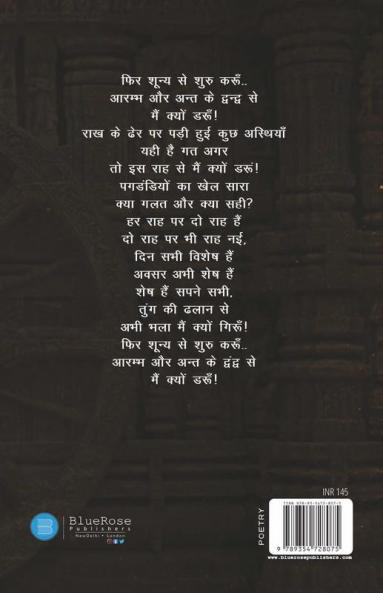 फिर शून्य से शुरु करूँ..
आरम्भ और अन्त के द्वन्द्व से
मैं क्यों डरूँ!
राख के ढेर पर पड़ी हुई कुछ अस्थियाँ
यही है गत अगर
तो इस राह से मैं क्यों डरूं!
पगडंडियों का खेल सारा
क्या गलत और क्या सही?
हर राह पर दो राह हैं
दो राह पर भी राह नई,
दिन सभी विशेष हैं
अवसर अभी शेष हैं
शेष हैं सपने सभी,
तुंग की ढलान से
अभी भला मैं क्यों गिरूँ!
फिर शून्य से शुरु करूँ..
आरम्भ और अन्त के द्वंद्व से
मैं क्यों डरूँ!
INR 145
POETRY
9 789354 728075
www.bluerosepublishers.com
B
BlueRose
Publishers
NewDelhi • London